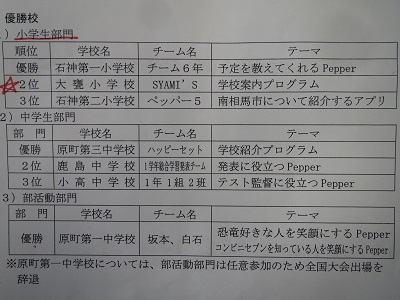 優勝校
1)小学生部門
順位 学校名 チーム名 テーマ
優勝 石神第一小学校 チーム6年 予定を教えてくれるPepper
2位 大甕小学校 SYAMI'S 学校案内プログラム
3位 石神第二小学校 ペッパー5 南相馬市について紹介するアプリ
2)中学生部門
部門 学校名 チーム名 テーマ
優勝 原町第三中学校 ハッピーセット 学校紹介プログラム
2位 鹿島中学校 1学年総合学習発表チーム 発表に役立つPepper
3位 小高中学校 1年1組2班 テスト監督に役立つPepper
3)部活動部門
部門 学校名 チーム名 テーマ
優勝 原町第一中学校 坂本、白石 恐竜好きな人を笑顔にするPepper
コンビニセブンを知っている人を笑顔にするPepper
※原町第一中学校については、部活動部門は任意参加のため全国大会出場を
辞退